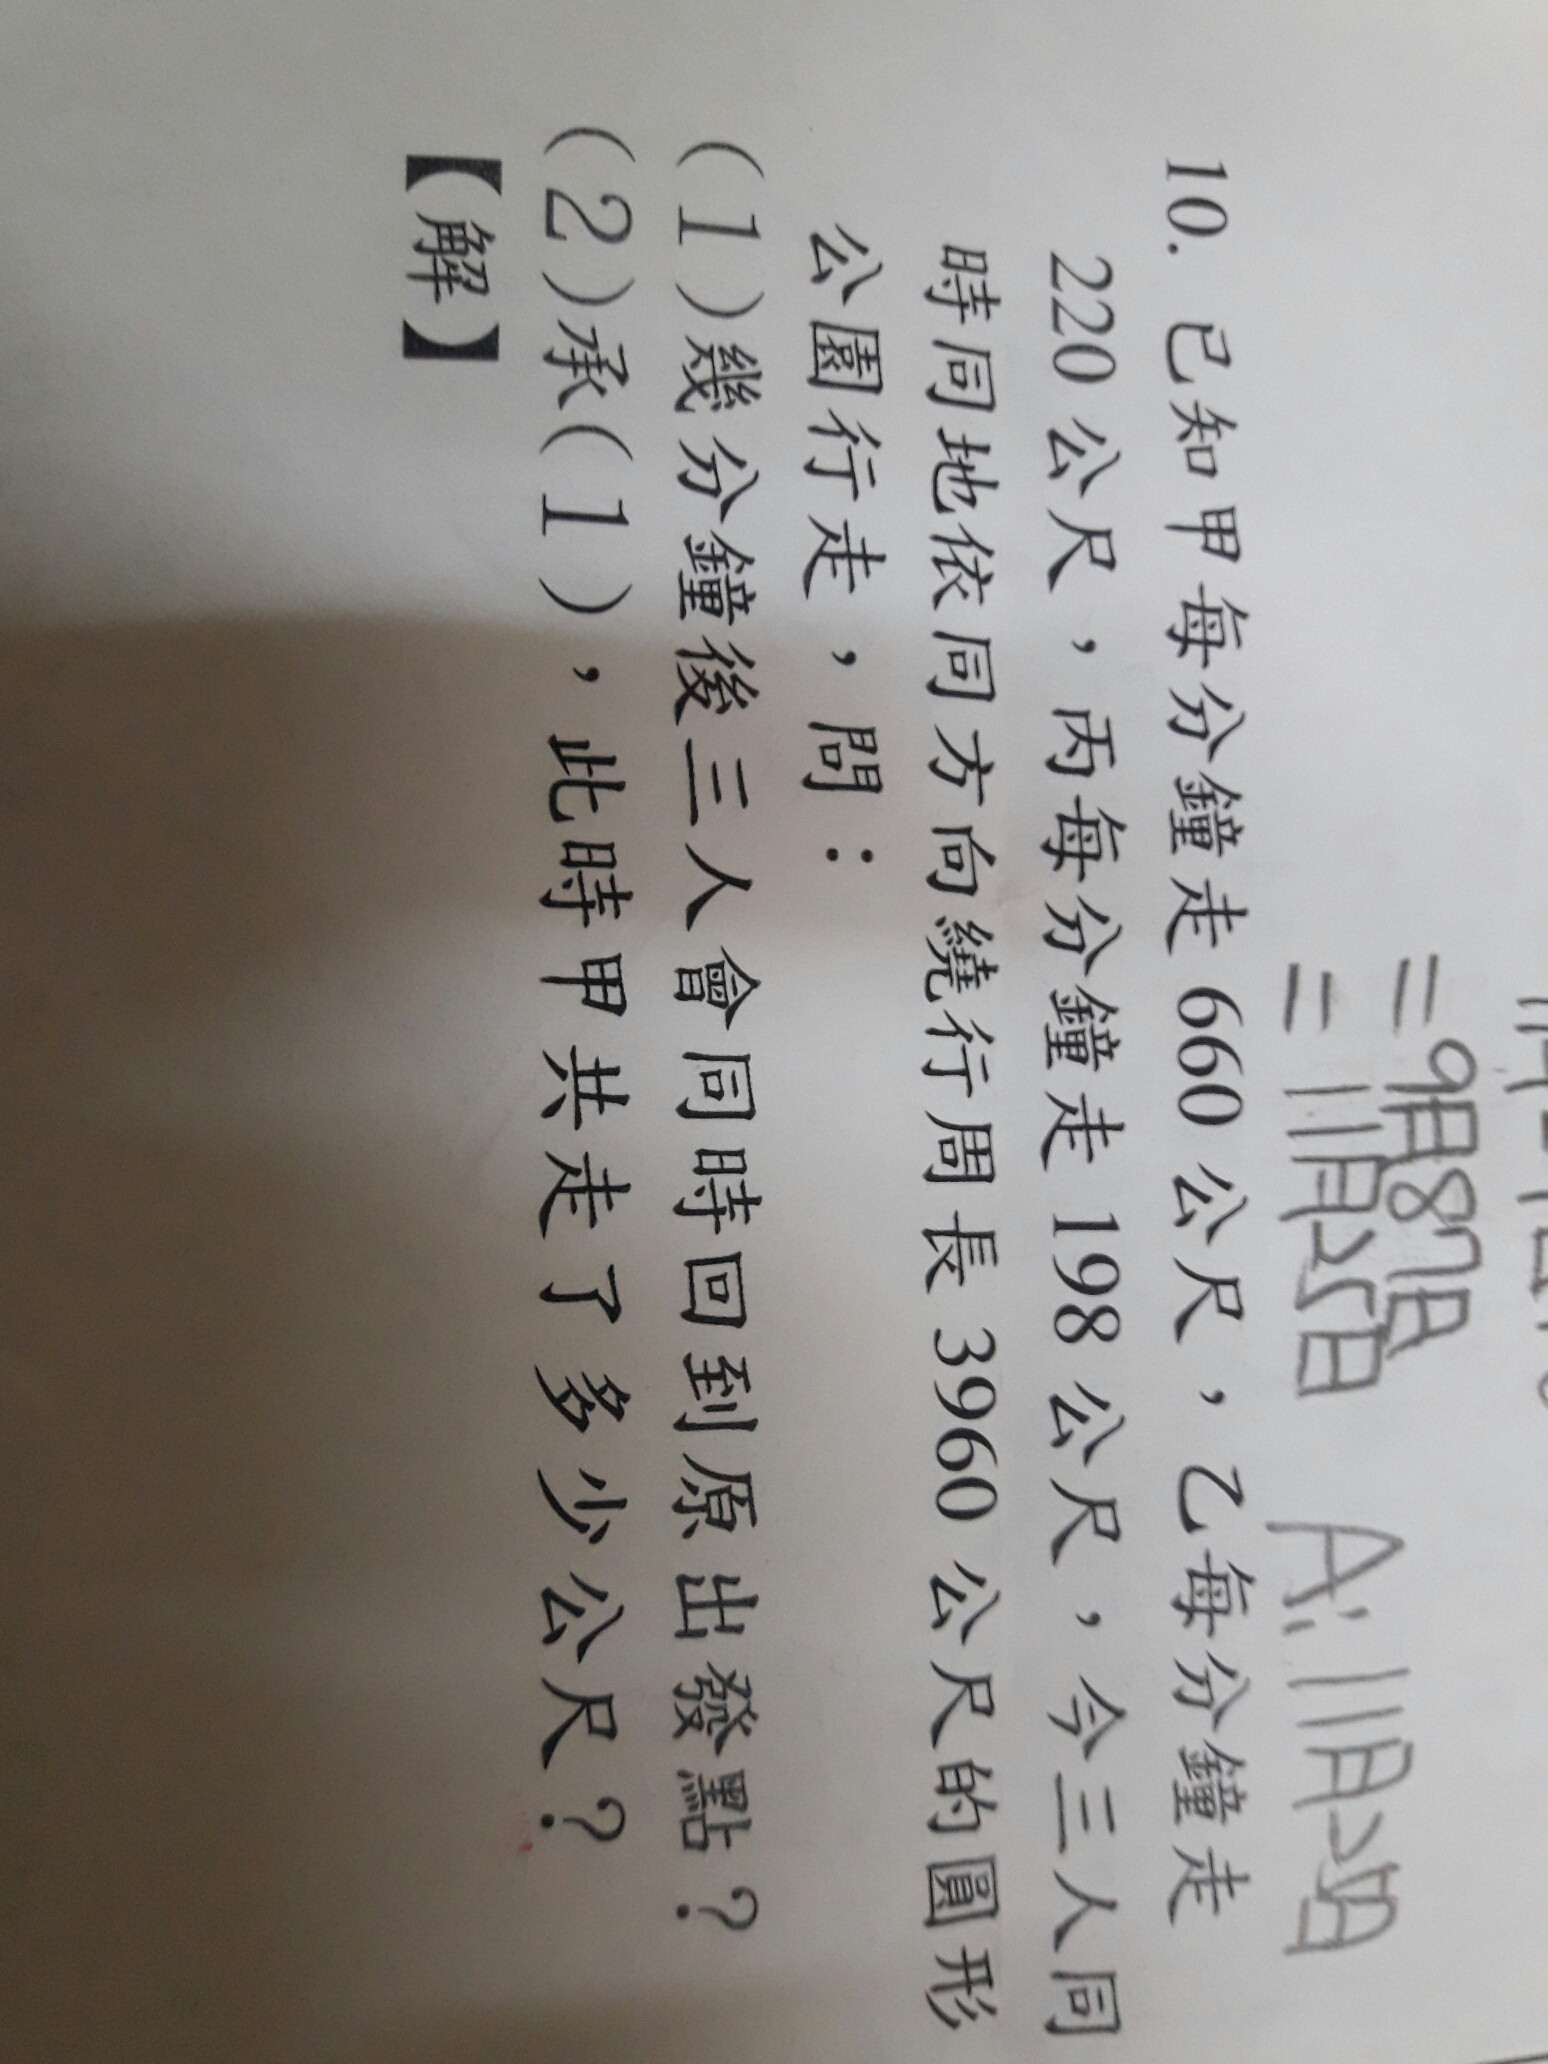 =9月87日
=11月27日 A:11月27日
10. 已知甲每分鐘走 660 公尺，乙每分鐘走
220 公尺，丙每分鐘走 198 公尺，今三人同
時同地依同方向繞行周長 3960 公尺的圓形
公園行走，問：
(1)幾分鐘後三人會同時回到原出發點？
(2)承(1)，此時甲共走了多少公尺？
【解】